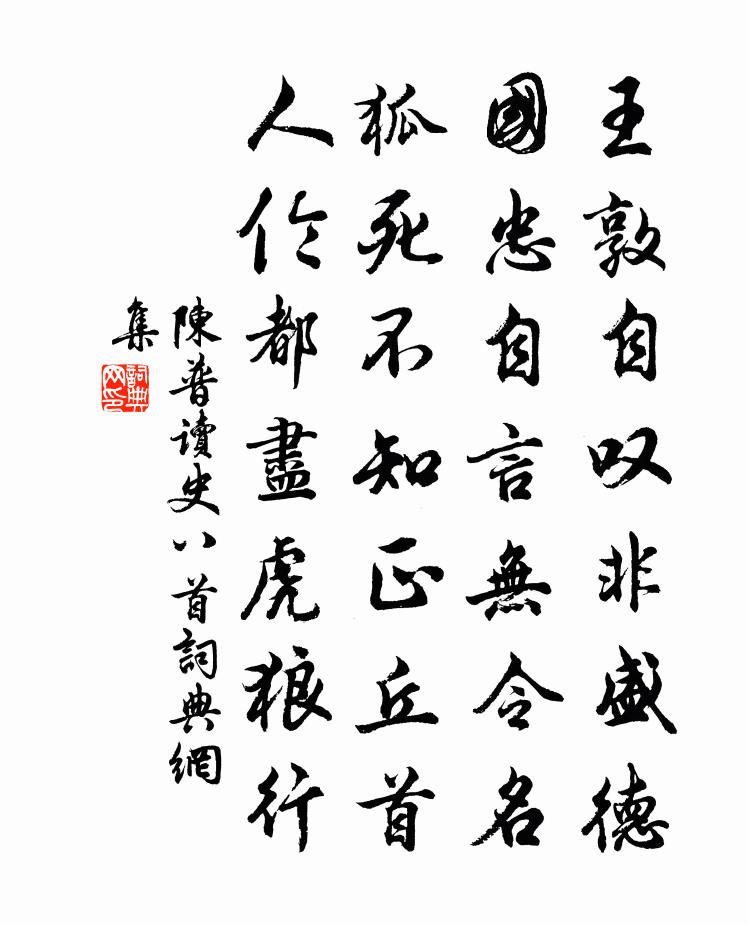 王敦自叹非盛德
國忠自言無令名
狐死不知正丘首
人伦都盡虎狼行
陳普讀史八首詞典網
集
詞典
网印